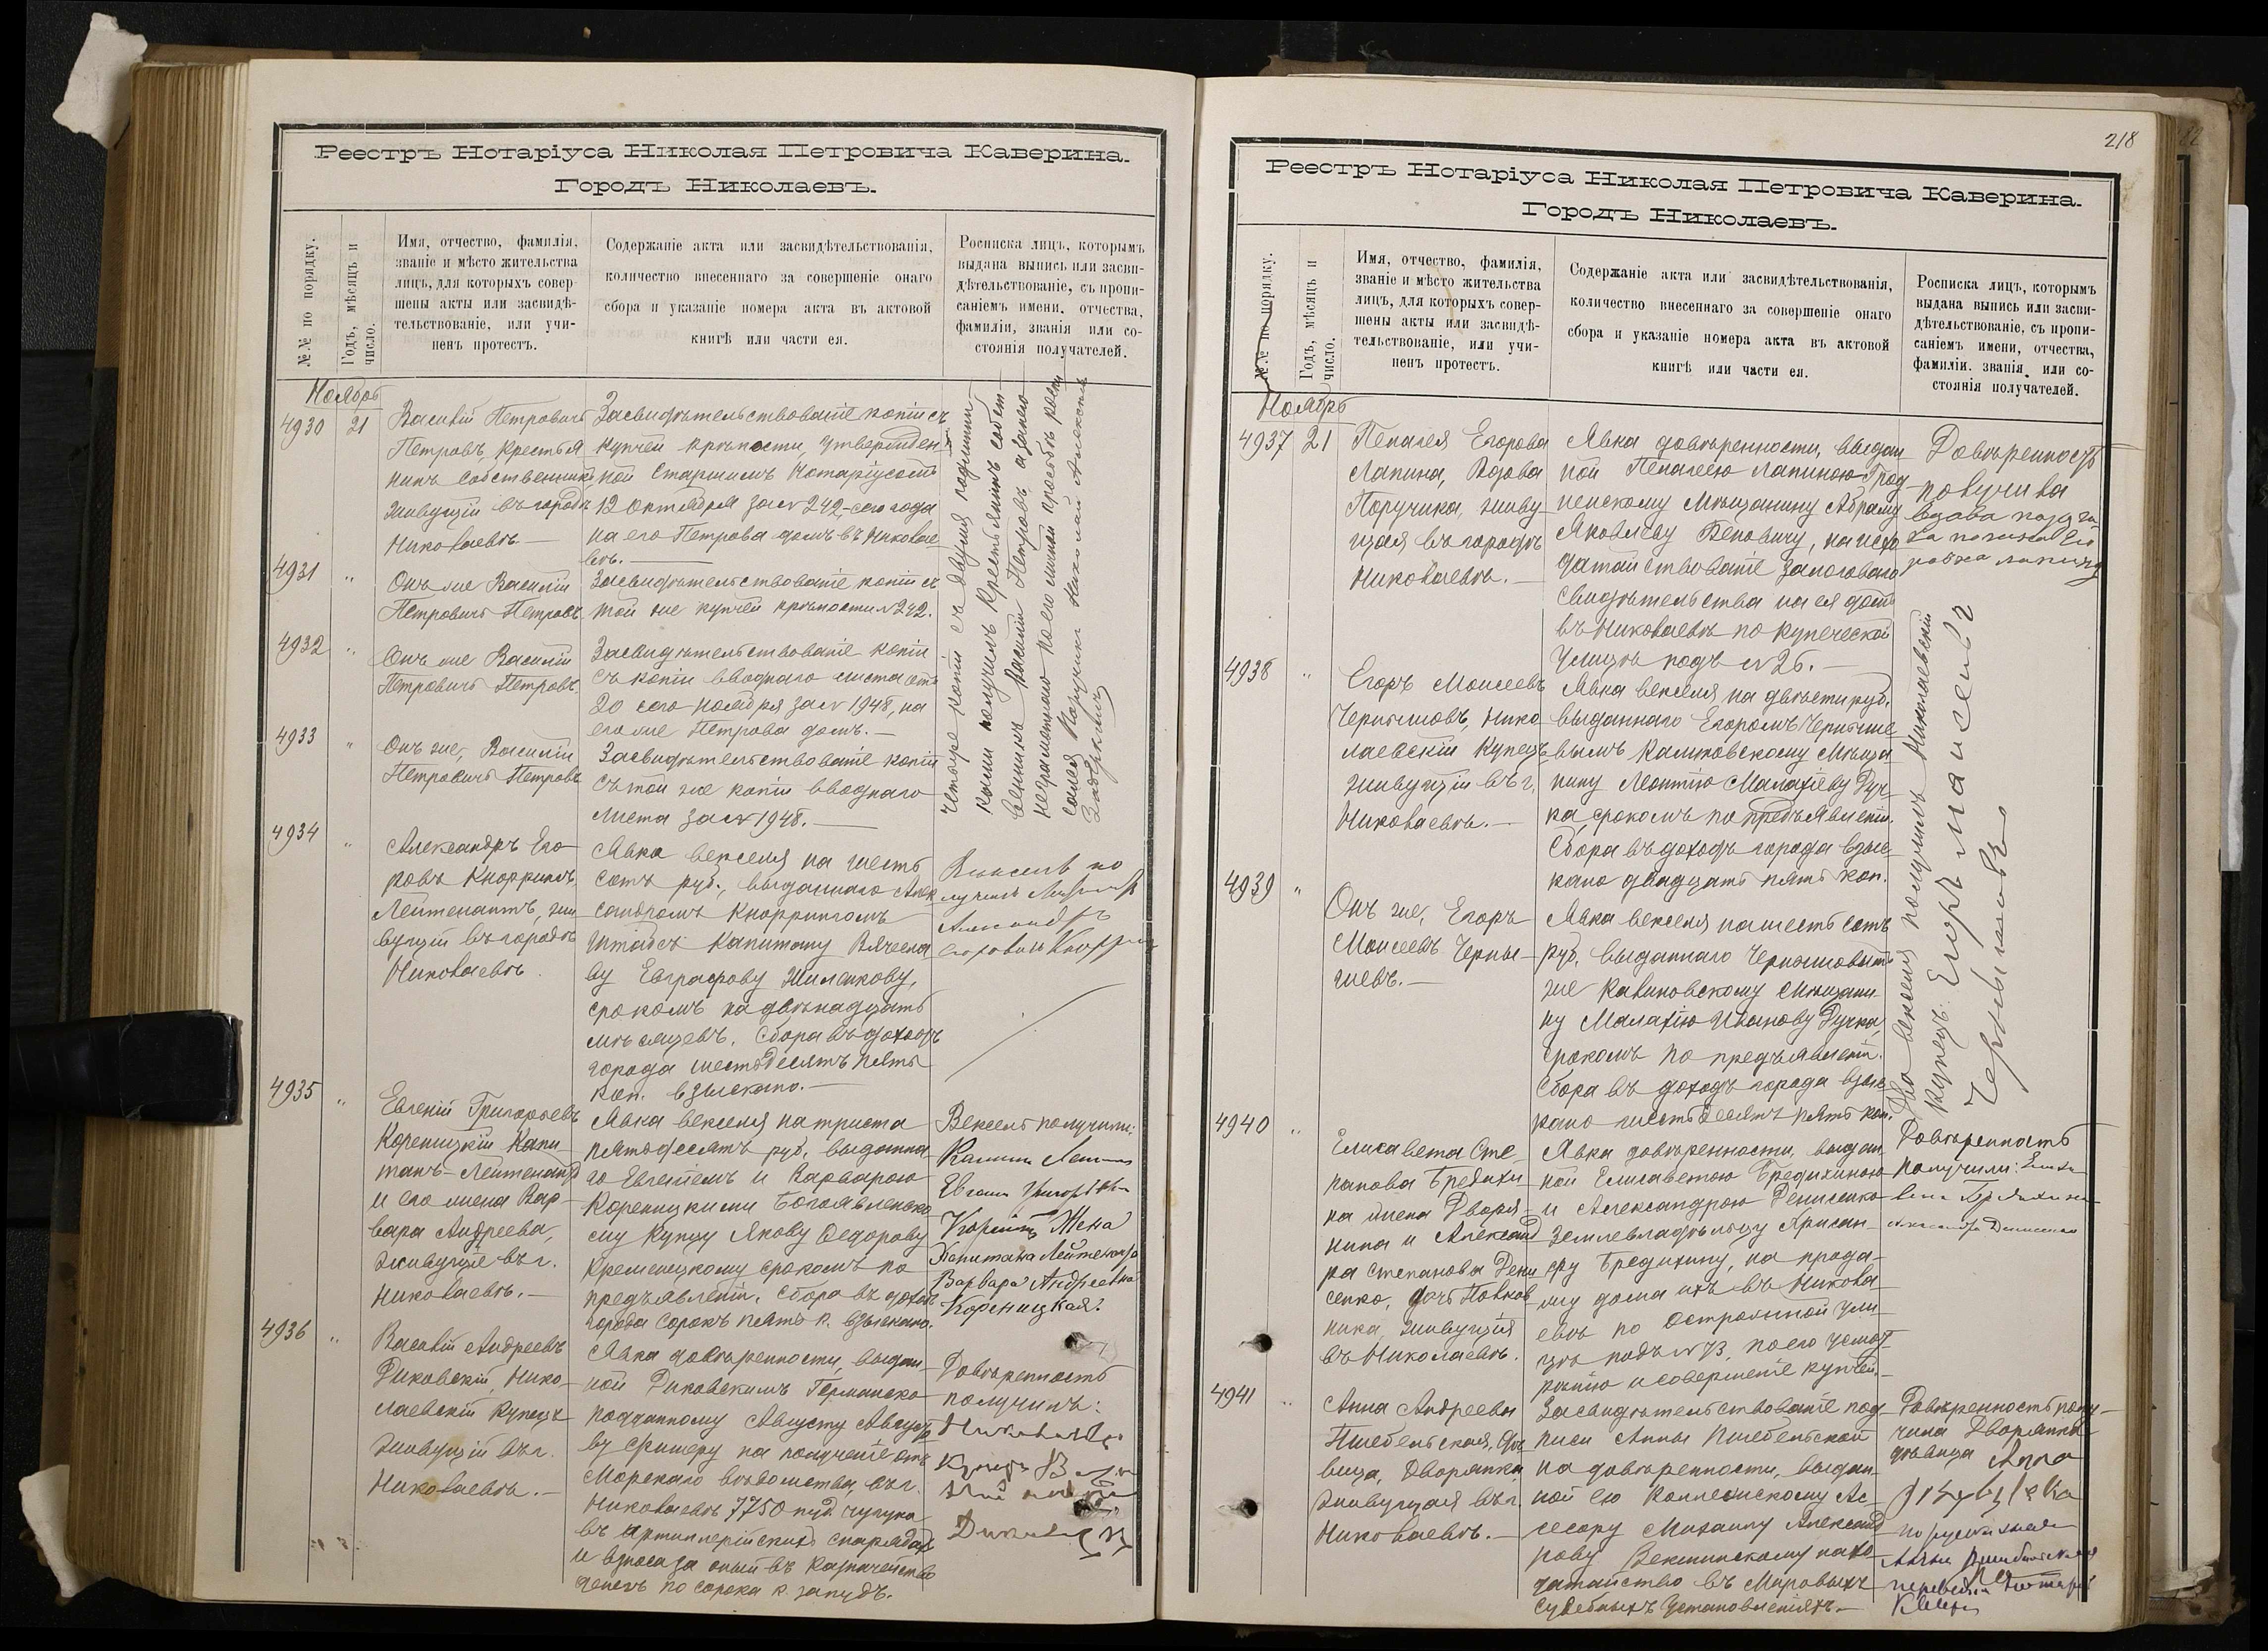 Реестръ Нотаріуса Николая Петровича Каверина.
Городъ Николаевъ.
№№ по порядку.
Годъ, мѣсяцъ и
число.
Имя, отчество, фамилія,
званіе и мѣсто жительства
лицъ, для которыхъ совер-
шены акты или засвидѣ-
тельствованіе, или учи-
ненъ протестъ.
Содержаніе акта или засвидѣтельствованія,
количество внесеннаго за совершеніе онаго
сбора и указаніе номера акта въ актовой
книгѣ или части ея.
Росписка лицъ, которымъ
выдана выпись или засви-
дѣтельствованіе, съ пропи-
саніемъ имени, отчества,
фамиліи, званія или со-
стоянія получателей.
Ноябрь
4930
21
Василій Петровичъ
Петровъ, крестья
нинъ собственникъ
живущій въ городѣ
Николаевѣ.—
Засвидѣтельствованіе копіи съ
купчей крѣпости, утвержден-
ной Старшимъ Нотаріусомъ
12 Октября за № 242,- сего года
на его Петрова домъ въ Николае-
вѣ.—
4931
"
Онъ же Василій
Петровичъ Петровъ
Засвидѣтельствованіе копіи съ
той же купчей крѣпости № 242.
4932
"
Онъ же Василій
Петровичъ Петровъ.
Засвидѣтельствованіе копіи
съ копіи вводнаго листа отъ
20 сего ноября за № 1948, на
его же Петрова домъ.—
4933
"
Онъ же, Василій
Петровичъ Петровъ
Засвидѣтельствованіе копіи
съ той же копіи вводнаго
листа за № 1948.—
Четыре копіи съ двумя подлинни-
ками получилъ крестьянинъ собст-
венникъ Василій Петровъ а за него
неграмотнаго по его личной просьбѣ роспи
сался Поручикъ Николай Алексѣевъ
4934
"
Александръ Его-
ровъ Кноррингъ,
Лейтенантъ, жи
вущій въ городѣ
Николаевѣ.
Явка векселя на шесть
сотъ руб., выданнаго Алек
сандромъ Кноррингомъ
Штабсъ Капитану Вячесла
ву Евграфову Шиленкову,
срокомъ на двѣнадцать
мѣсяцевъ. Сбора въ доходъ
города шестьдесятъ пять
коп. взыскано.—
Вексель по
лучилъ
Александръ
4935
"
Евгеній Григорьевъ
Кореницкій Капи
танъ-Лейтенантъ
и его жена Вар-
вара Андреева,
живущіе въ г.
Николаевѣ.—
Явка векселя на триста
пятьдесятъ руб., выданна
го Евгеніемъ и Варварою
Кореницкими Богоявленско
му Купцу Якову Ѳедорову
Кременецкому срокомъ по
предъявленіи. Сбора въ доходъ
города сорокъ пять к. взыскано.
Вексель получили:
Евгеній Григорьевъ
Жена
Капитана Лейтенанта
Варвара Андреевна
Кореницкая.
4936
"
Василій Андреевъ
Диковскій, Нико-
лаевскій купецъ
живущій въ г.
Николаевѣ.—
Явка довѣренности, выдан-
ной Диковскимъ Германско-
подданному Августу Августо
ву Фишеру на полученіе отъ
Морскаго вѣдомства, въ г.
Николаевѣ 7750 пуд. чугуна
въ артиллерійскихъ снарядахъ
и взноса за оный въ казначейство
денегъ по сорока к. запудъ.
Довѣренность
получилъ:
218
Реестръ Нотаріуса Николая Петровича Каверина.
Городъ Николаевъ.
№№ по порядку.
Годъ, мѣсяцъ и
число.
Имя, отчество, фамилія,
званіе и мѣсто жительства
лицъ, для которыхъ совер-
шены акты или засвидѣ-
тельствованіе, или учи-
ненъ протестъ.
Содержаніе акта или засвидѣтельствованія,
количество внесеннаго за совершеніе онаго
сбора и указаніе номера акта въ актовой
книгѣ или части ея.
Росписка лицъ, которымъ
выдана выпись или засви-
дѣтельствованіе, съ пропи-
саніемъ имени, отчества,
фамиліи. званія или со-
стоянія получателей.
Ноябрь
4937
21
Пелагея Егорова
Лапина, Вдова
Поручика, живу
щая въ городѣ
Николаевѣ.—
Явка довѣренности, выдан
ной Пелагеею Лапиною Грод
ненскому Мѣщанину Абраму
Яковлеву Беновичу, на исхо
датайствованіе залоговаго
свидѣтельства на ея домъ
въ Николаевѣ по Купеческой
улицѣ подъ № 26.—
Довѣренность
получила
вдова
4938
"
Егоръ Моисеевъ
Чернышовъ, Нико
лаевскій купецъ
живущій въ г.
Николаевѣ.—
Явка векселя на двѣсти руб.
выданнаго Егоромъ Черныше
вымъ Калиновскому Мѣща
нину Леонтію Малахіеву Дуч
ка срокомъ по предъявленіи.
Сбора въ доходъ города взыс-
кано двадцать пять коп.
4939
"
Онъ же, Егоръ
Моисеевъ Черны-
шевъ.—
Явка векселя на шесть сотъ
руб. выданнаго Чернышовымъ
же Калиновскому Мѣщани-
ну Малахію Иванову Дучка,
срокомъ по предъявленіи.
Сбора въ доходъ города взыс-
кано шестьдесятъ пять коп.
Два векселя получилъ Николаевскій
купецъ: Егоръ Маисеивъ
4940
"
Елисавета Сте-
панова Бредихи-
на жена Дворя-
нина и Александ
ра Степанова Дени
сенко, дочь Полков
ника, живущія
въ Николаевѣ.
Явка довѣренности, выдан
ной Елисаветою Бредихиною
и Александрою Денисенко
Землевладѣльцу
Бредихину, на прода-
жу дома ихъ въ Никола-
евѣ по
цѣ подъ № 73, по его усмот-
рѣнію и совершеніе купчей.—
Довѣренность
получили:
Александра
4941
"
Анна Андреевна
вица, Дворянка,
живущая въ г.
Николаевѣ.—
Засвидѣтельствованіе под-
писи Анны
на довѣренности, выдан-
ной ею Коллежскому Ас-
сесору Михаилу Александ
рову
датайство въ Мировыхъ
Судебныхъ Установленіяхъ.—
Довѣренность полу-
чила Дворянка
дѣвица